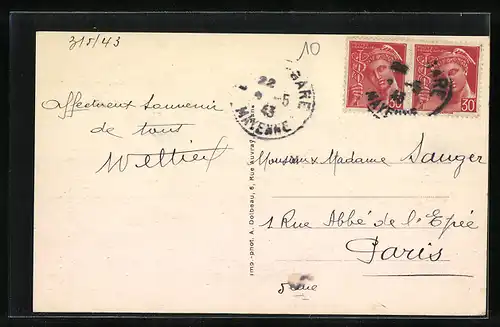 3/5/43
10
22
2 -5
43
GARE
MAYENNE
30
GARE
MAYENNE
affectueux souvenir
de tous
Monsieur Madame Sauger
1 Rue Abbé de l'Epée
Paris
5ème
Imp.-phot. A. Dolbeau, 6, Rue Auvray